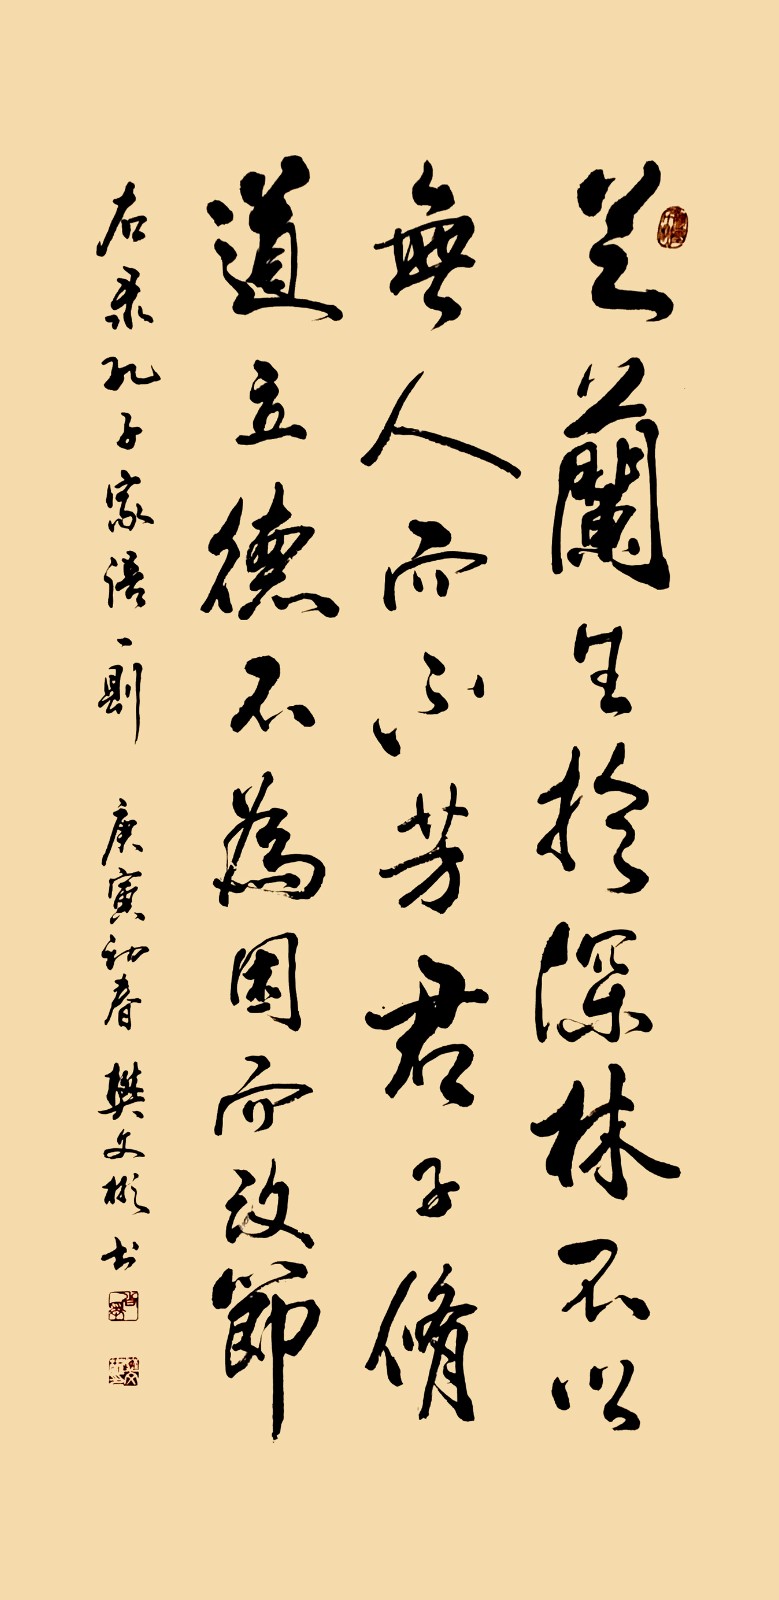 芝蘭生於深林不以
無人而不芳君子脩
道立德不為困而改節
右录孔子家语一則 庚寅初春 樊文彬书